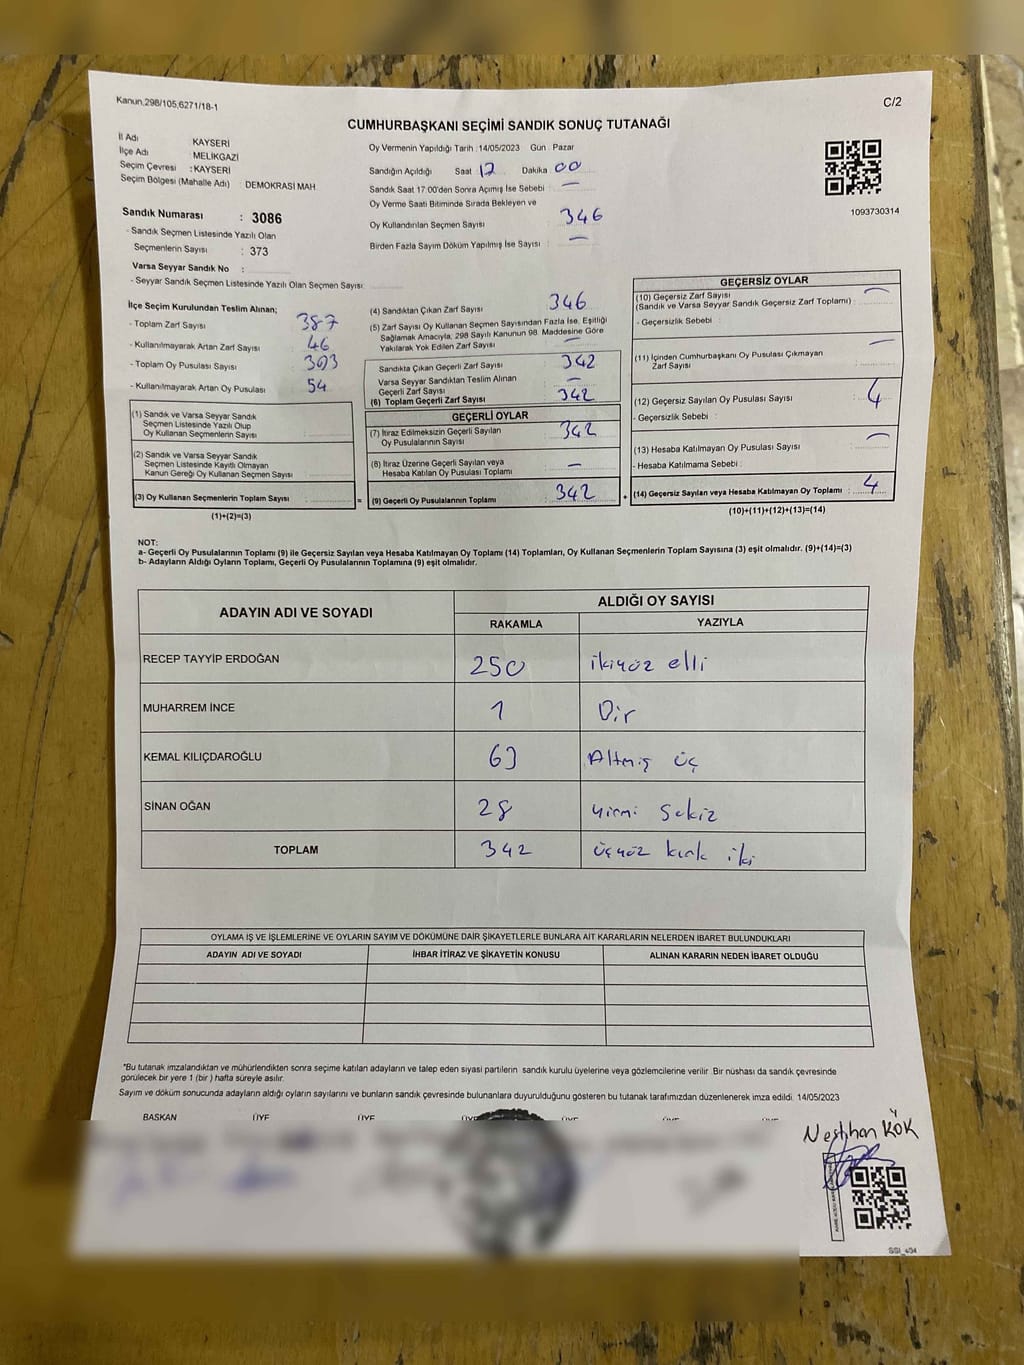 Kanun.298/105,6271/18-1
C/2
CUMHURBAŞKANI SEÇİMİ SANDIK SONUÇ TUTANAĞI
İl Adı KAYSERİ
İlçe Adı MELIKGAZİ
Seçim Çevresi : KAYSERİ
Seçim Bölgesi (Mahalle Adı) : DEMOKRASİ MAH.
Oy Vermenin Yapıldığı Tarih :14/05/2023 Gün : Pazar
Sandığın Açıldığı Saat 17 Dakika 00
Sandık Saat 17:00'den Sonra Açımış İse Sebebi : —
Oy Verme Saati Bitiminde Sırada Bekleyen ve
Oy Kullandırılan Seçmen Sayısı 346
Birden Fazla Sayım Döküm Yapılmış İse Sayısı : —
1093730314
Sandık Numarası : 3086
- Sandık Seçmen Listesinde Yazılı Olan
Seçmenlerin Sayısı : 373
Varsa Seyyar Sandık No :
- Seyyar Sandık Seçmen Listesinde Yazılı Olan Seçmen Sayısı:
İlçe Seçim Kurulundan Teslim Alınan;
- Toplam Zarf Sayısı 387
- Kullanılmayarak Artan Zarf Sayısı 46
- Toplam Oy Pusulası Sayısı 393
- Kullanılmayarak Artan Oy Pusulası 54
(1) Sandık ve Varsa Seyyar Sandık
Seçmen Listesinde Yazılı Olup
Oy Kullanan Seçmenlerin Sayısı
(2) Sandık ve Varsa Seyyar Sandık
Seçmen Listesinde Kayıtlı Olmayan
Kanun Gereği Oy Kullanan Seçmen Sayısı :
(3) Oy Kullanan Seçmenlerin Toplam Sayısı
(1)+(2)=(3)
(4) Sandıktan Çıkan Zarf Sayısı 346
(5) Zarf Sayısı Oy Kullanan Seçmen Sayısından Fazla İse, Eşitliği
Sağlamak Amacıyla, 298 Sayılı Kanunun 98. Maddesine Göre
Yakılarak Yok Edilen Zarf Sayısı : —
Sandıkta Çıkan Geçerli Zarf Sayısı 342
Varsa Seyyar Sandıktan Teslim Alınan
Geçerli Zarf Sayısı —
(6) Toplam Geçerli Zarf Sayısı 342
GEÇERLİ OYLAR
(7) İtiraz Edilmeksizin Geçerli Sayılan
Oy Pusulalarının Sayısı 342
(8) İtiraz Üzerine Geçerli Sayılan veya
Hesaba Katılan Oy Pusulası Toplamı —
= (9) Geçerli Oy Pusulalarının Toplamı 342 +
GEÇERSİZ OYLAR
(10) Geçersiz Zarf Sayısı
(Sandık ve Varsa Seyyar Sandık Geçersiz Zarf Toplamı) : —
- Geçersizlik Sebebi :
(11) İçinden Cumhurbaşkanı Oy Pusulası Çıkmayan
Zarf Sayısı —
(12) Geçersiz Sayılan Oy Pusulası Sayısı 4
- Geçersizlik Sebebi :
(13) Hesaba Katılmayan Oy Pusulası Sayısı —
- Hesaba Katılmama Sebebi :
(14) Geçersiz Sayılan veya Hesaba Katılmayan Oy Toplamı : 4
(10)+(11)+(12)+(13)=(14)
NOT:
a- Geçerli Oy Pusulalarının Toplamı (9) ile Geçersiz Sayılan veya Hesaba Katılmayan Oy Toplamı (14) Toplamları, Oy Kullanan Seçmenlerin Toplam Sayısına (3) eşit olmalıdır. (9)+(14)=(3)
b- Adayların Aldığı Oyların Toplamı, Geçerli Oy Pusulalarının Toplamına (9) eşit olmalıdır.
ADAYIN ADI VE SOYADI ALDIĞI OY SAYISI
RAKAMLA YAZIYLA
RECEP TAYYİP ERDOĞAN 250 ikiyüz elli
MUHARREM İNCE 1 Bir
KEMAL KILIÇDAROĞLU 63 Altmış üç
SİNAN OĞAN 28 yirmi Sekiz
TOPLAM 342 üçyüz kırk iki
OYLAMA İŞ VE İŞLEMLERİNE VE OYLARIN SAYIM VE DÖKÜMÜNE DAİR ŞİKAYETLERLE BUNLARA AİT KARARLARIN NELERDEN İBARET BULUNDUKLARI
ADAYIN ADI VE SOYADI İHBAR İTİRAZ VE ŞİKAYETİN KONUSU ALINAN KARARIN NEDEN İBARET OLDUĞU
*Bu tutanak imzalandıktan ve mühürlendikten sonra seçime katılan adayların ve talep eden siyasi partilerin sandık kurulu üyelerine veya gözlemcilerine verilir. Bir nüshası da sandık çevresinde
görülecek bir yere 1 (bir ) hafta süreyle asılır.
Sayım ve döküm sonucunda adayların aldığı oyların sayılarını ve bunların sandık çevresinde bulunanlara duyurulduğunu gösteren bu tutanak tarafımızdan düzenlenerek imza edildi. 14/05/2023
BAŞKAN ÜYE ÜYE ÜYE ÜYE ÜYE
Neslihan KÖK